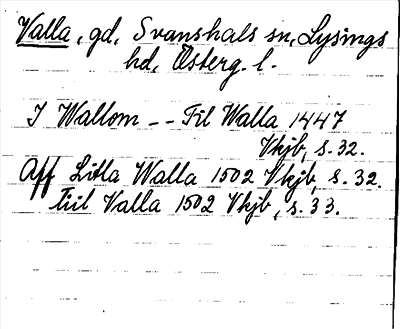 Valla, gd, Svanshals sn, Lysings
hd, Österg. l.
I Wallom -- Til Walla 1447
Vkjb, s. 32.
Aff Litla Walla 1502 Vkjb, s. 32.
Tiil Valla 1502 Vkjb, s. 33.